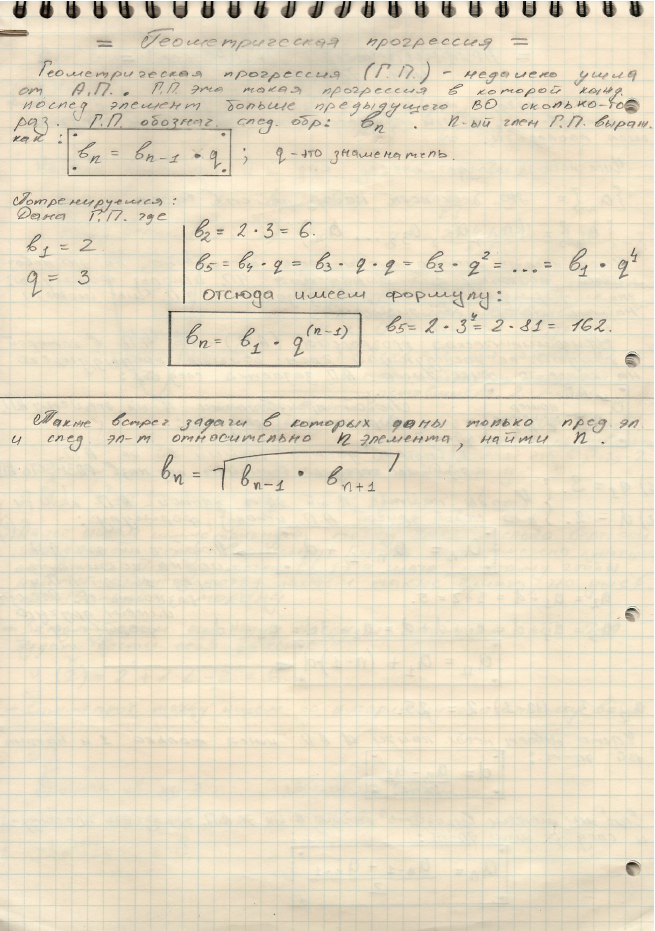 = Геометрическая прогрессия =
Геометрическая прогрессия (Г.П.) - недалеко ушла
от А.П.. Г.П это такая прогрессия в которой кажд.
послед элемент больше предыдущего ВО сколько-то
раз. Г.П. обознач. след. обр: bn . n-ый член Г.П. выраж.
как :
bn = bn-1 · q ; q - это знаменатель.
Потренируемся:
Дана Г.П. где
b1 = 2
q = 3
b2 = 2 · 3 = 6.
b5 = b4 · q = b3 · q · q = b3 · q² = ... = b1 · q⁴
отсюда имеем формулу:
bn = b1 · q^(n-1)
b5 = 2 · 3⁴ = 2 · 81 = 162.
Также встреч задачи в которых даны только пред эл
и след эл-т относительно n элемента, найти n.
bn = √(bn-1 · bn+1)